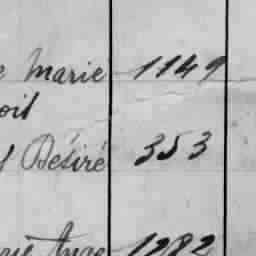 Marie 1149
oit
Désiré 353
Ange 1282